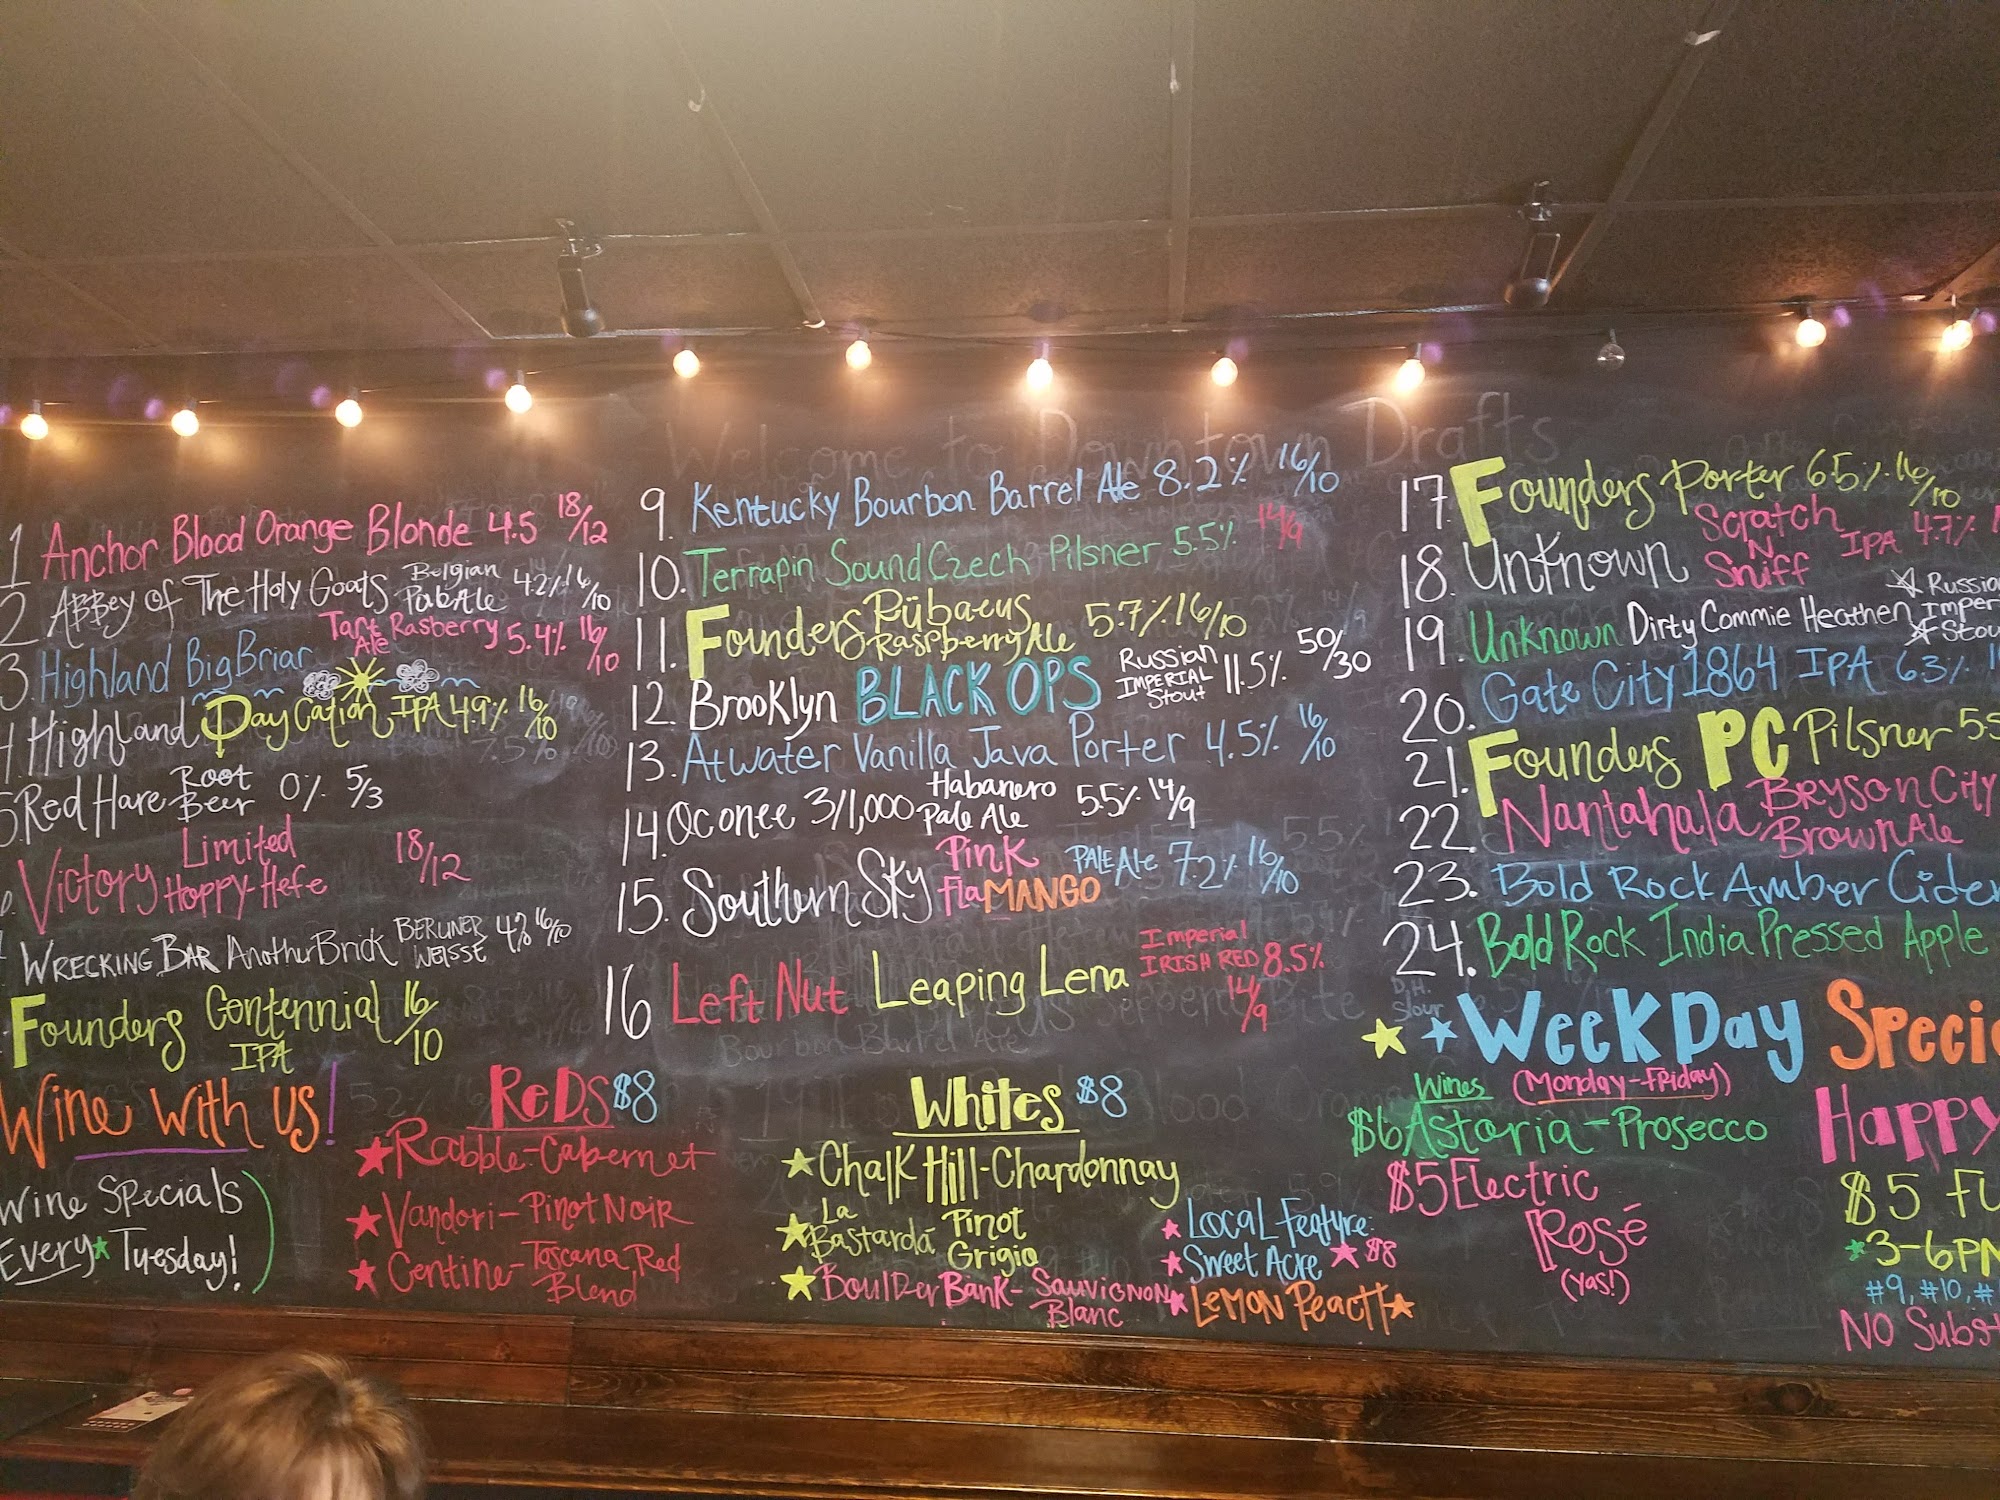 Welcome to Downtown Drafts
1 Anchor Blood Orange Blonde 4.5 18/12
2 Abbey of The Holy Goats Belgian Pale Ale 4.2% 16/10
3. Highland Big Briar Tart Rasberry Ale 5.4% 16/10
Highland DayCation IPA 4.9% 16/10
Red Hare Root Beer 0% 5/3
Victory Limited Hoppy-Hefe 18/12
WRECKING BAR Another Brick BERLINER WEISSE 4% 16/10
Founders Centennial IPA 16/10
9. Kentucky Bourbon Barrel Ale 8.2% 16/10
10. Terrapin Sound Czech Pilsner 5.5% 14/9
11. Founders Rübaeus Raspberry Ale 5.7% 16/10
12. Brooklyn BLACK OPS Russian IMPERIAL Stout 11.5% 50/30
13. Atwater Vanilla Java Porter 4.5% 16/10
14. Oconee 3/1,000 Habanero Pale Ale 5.5% 14/9
15. Southern Sky Pink FlaMANGO PALE Ale 7.2% 16/10
16 Left Nut Leaping Lena Imperial IRISH RED 8.5% 14/9
17. Founders Porter 6.5% 16/10
18. Unknown Scratch N Sniff IPA 4.7%
19. Unknown Dirty Commie Heathen Russian
20. Gate City 1864 IPA 6.3%
21. Founders PC Pilsner
22. Nantahala Bryson City Brown Ale
23. Bold Rock Amber Cider
24. Bold Rock India Pressed Apple
Wine with us!
Wine Specials
Every Tuesday!
ReDS $8
Rabble-Cabernet
Vandori-Pinot Noir
Centine-Toscana Red
Blend
Whites $8
Chalk Hill-Chardonnay
La Bastardá Pinot Grigio
Boulder Bank-Sauvignon Blanc
Local Feature:
Sweet Acre $8
Lemon Peach
WeekDay
Wines (Monday-Friday)
$6 Astoria-Prosecco
$5 Electric
Rosé
(yas!)
Happy
$5
3-6
#9, #10,
NO